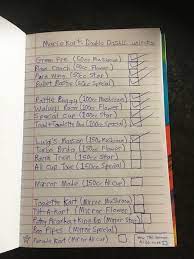 Mario Kart: Double Dash!! unlocks
Green Fire (50cc Mushroom)
Bloom Coach (50cc Flower)
Para Wing (50cc Star)
Bullet Blaster (50cc Special)
Rattle Buggy (100cc Mushroom)
Waluigi Racer (100cc Flower)
Special Cup (100cc Star)
Toad + Toadette (100cc Special)
Luigi's Mansion (150cc Mushroom)
Turbo Birdo (150cc Flower)
Barrel Train (150cc Star)
All Cup Tour (150cc Special)
Mirror Mode (150cc All cup)
Toadette Kart (Mirror Mushroom)
(Mirror Flower)
Petey Piranha + King Boo (Mirror Star)
Boo Pipes (Mirror Special)
Parade Kart (Mirror All cup)